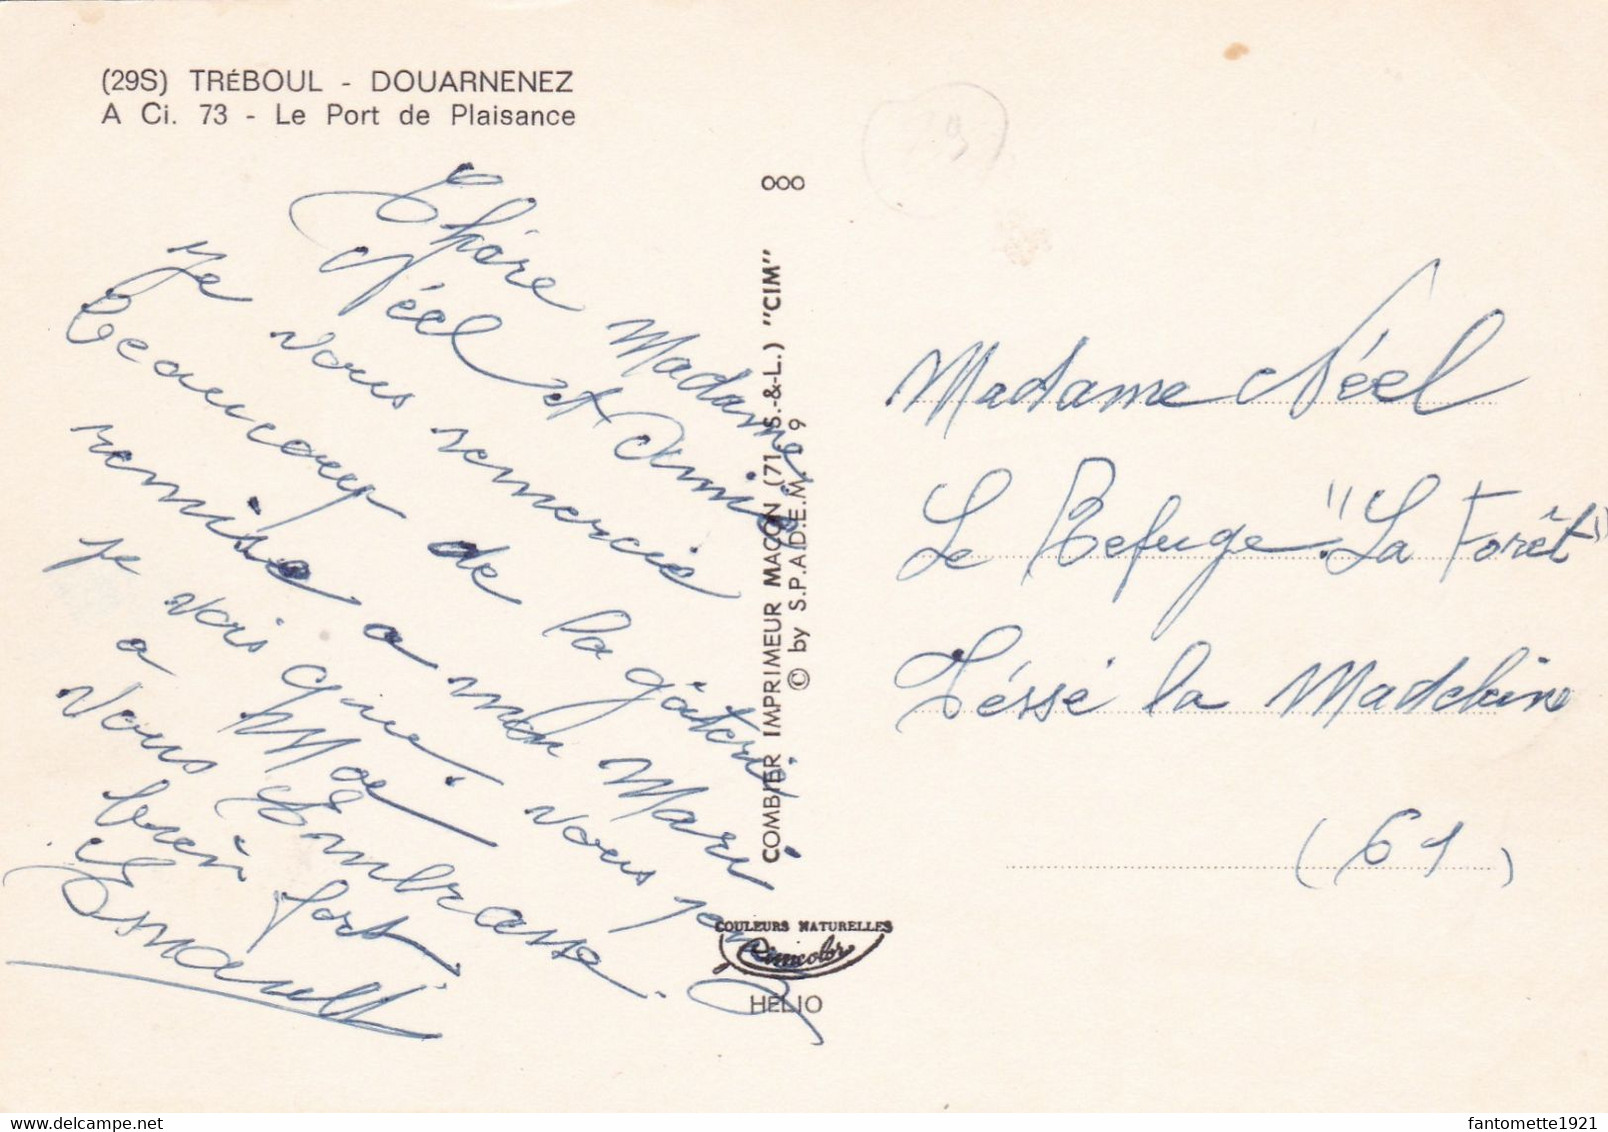 (29S) TRÉBOUL - DOUARNENEZ
A Ci. 73 - Le Port de Plaisance
Chère Madame
Néel et Amie
je vous remercie
beaucoup de la gâterie
remise a mon Mari
je vois que vous pensez
a Moi
Vous Embrasse
bien fort.
Esnault
000
COMBIER IMPRIMEUR MACON (71 S.-&-L.) "CIM"
© by S.P.A.D.E.M. 1 9
COULEURS NATURELLES
Cimcolor
HELIO
29
Madame Néel
Le Refuge "La Forêt"
Téssé la Madeleine
(61)
fantomette1921